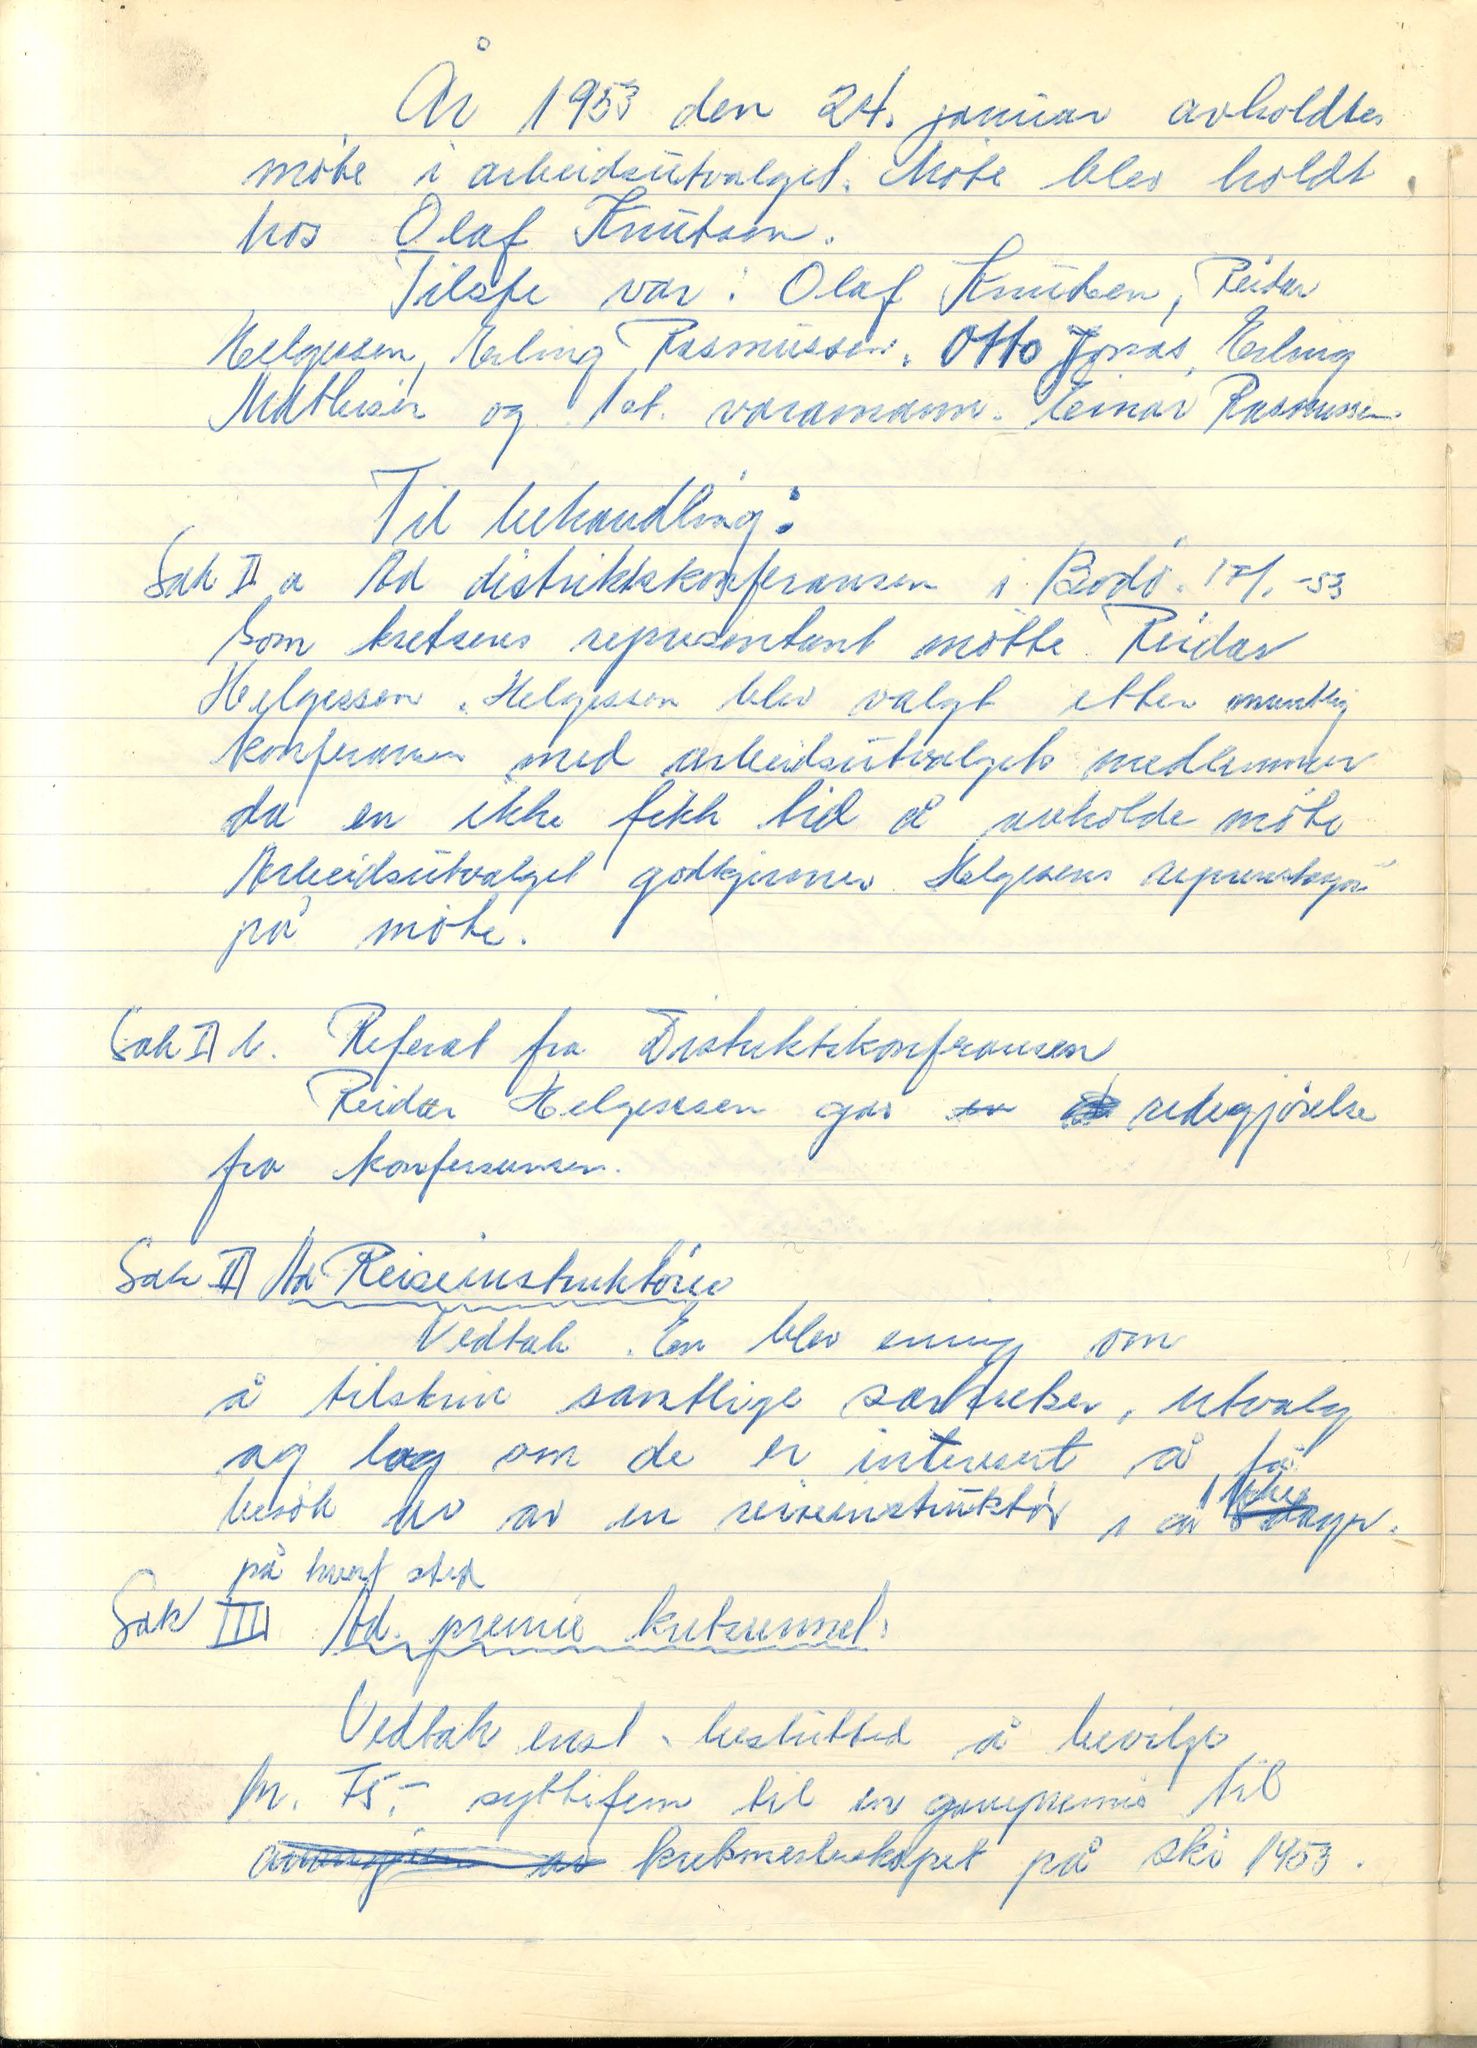 År 1953 den 24. januar avholdtes
møte i arbeidsutvalget. Møte blev holdt
hos Olaf Knutsen.
Tilstе var: Olaf Knutsen, Reidar
Helgesen, Erling Rasmussen, Otto Jonas, Erling
Mathisen og 1st. varamann. Einar Rasmussen.
Til behandling:
Sak I a Ad distriktskonferansen i Bodö. -53
Som kretsens representant mötte Reidar
Helgessen. Helgessen blev valgt etter muntlig
konferanse med arbeidsutvalgets medlemmer
da en ikke fikk tid å avholde möte
Arbeidsutvalget godkjenner Helgesens
på möte.
Sak I b. Referat fra Distriktskonfransen
Reidar Helgessen gav redegjörelse
fra konferansen.
Sak II Ad Reiseinstruktører
Vedtak. En blev enig om
å tilskrive samtlige særkretser, utvalg
og lag om de er interesert å få
besök av en reiseinstruktör i en
på hvert sted
Sak III Ad. premie kretsrennet.
Vedtak enst. beslutted å bevilge
kr. 75,- syttifem til en gavepremie til
kretsmesterskapet på ski 1953.